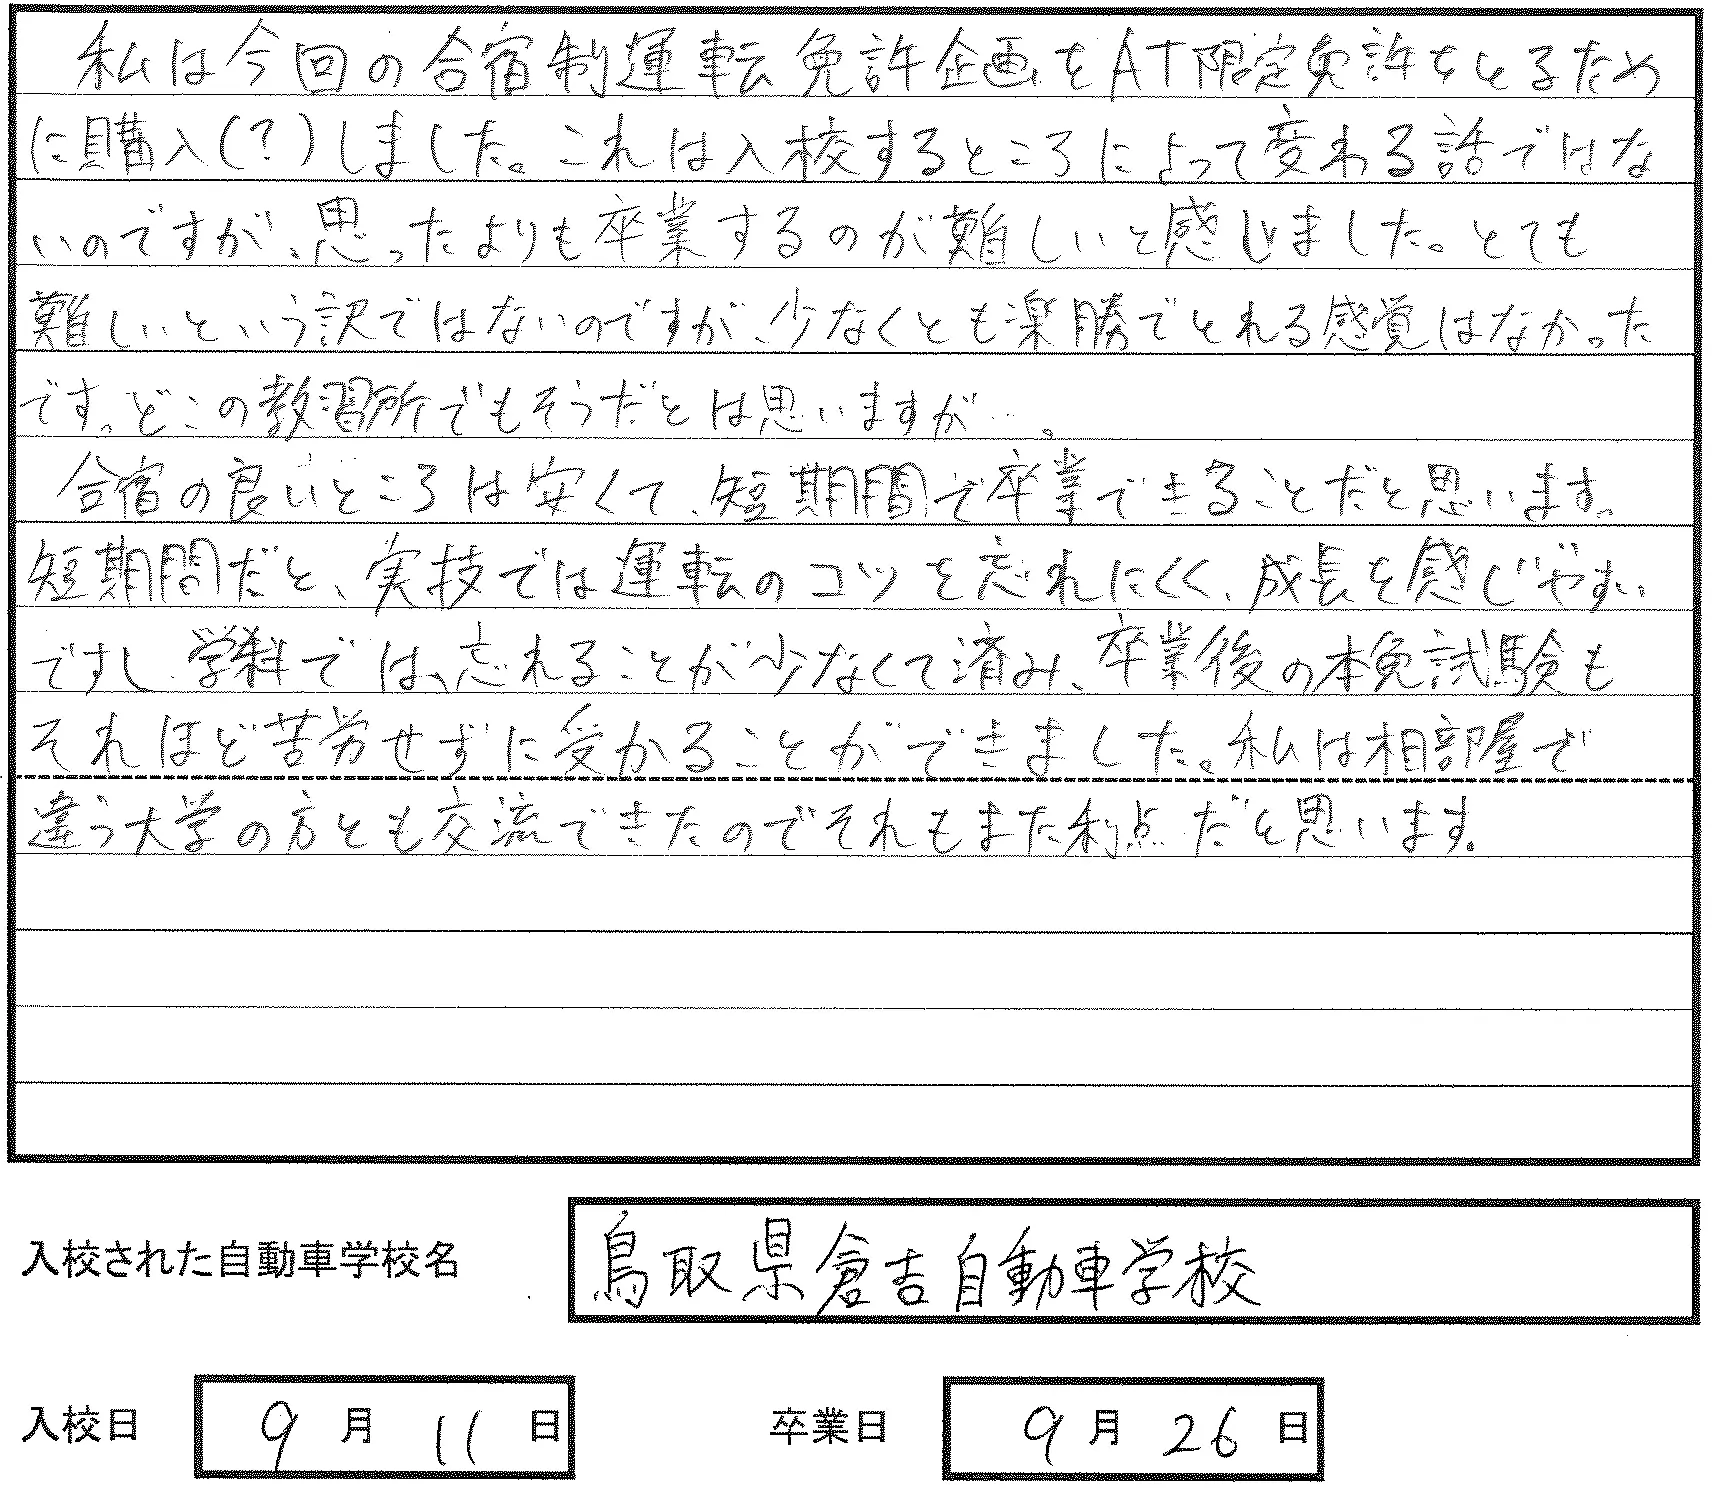 私は今回の合宿制運転免許企画をAT限定免許をとるため
に購入(?)しました。これは入校するところによって変わる話ではな
いのですが、思ったよりも卒業するのが難しいと感じました。とても
難しいという訳ではないのですが、少なくとも楽勝でとれる感覚はなかった
です。どこの教習所でもそうだとは思いますが…。
合宿の良いところは安くて、短期間で卒業できることだと思います。
短期間だと、実技では運転のコツを忘れにくく、成長を感じやすい
ですし、学科では、忘れることが少なくて済み、卒業後の本免試験も
それほど苦労せずに受かることができました。私は相部屋で
違う大学の方とも交流できたのでそれもまた利点だと思います。
入校された自動車学校名 鳥取県倉吉自動車学校
入校日 9月11日 卒業日 9月26日